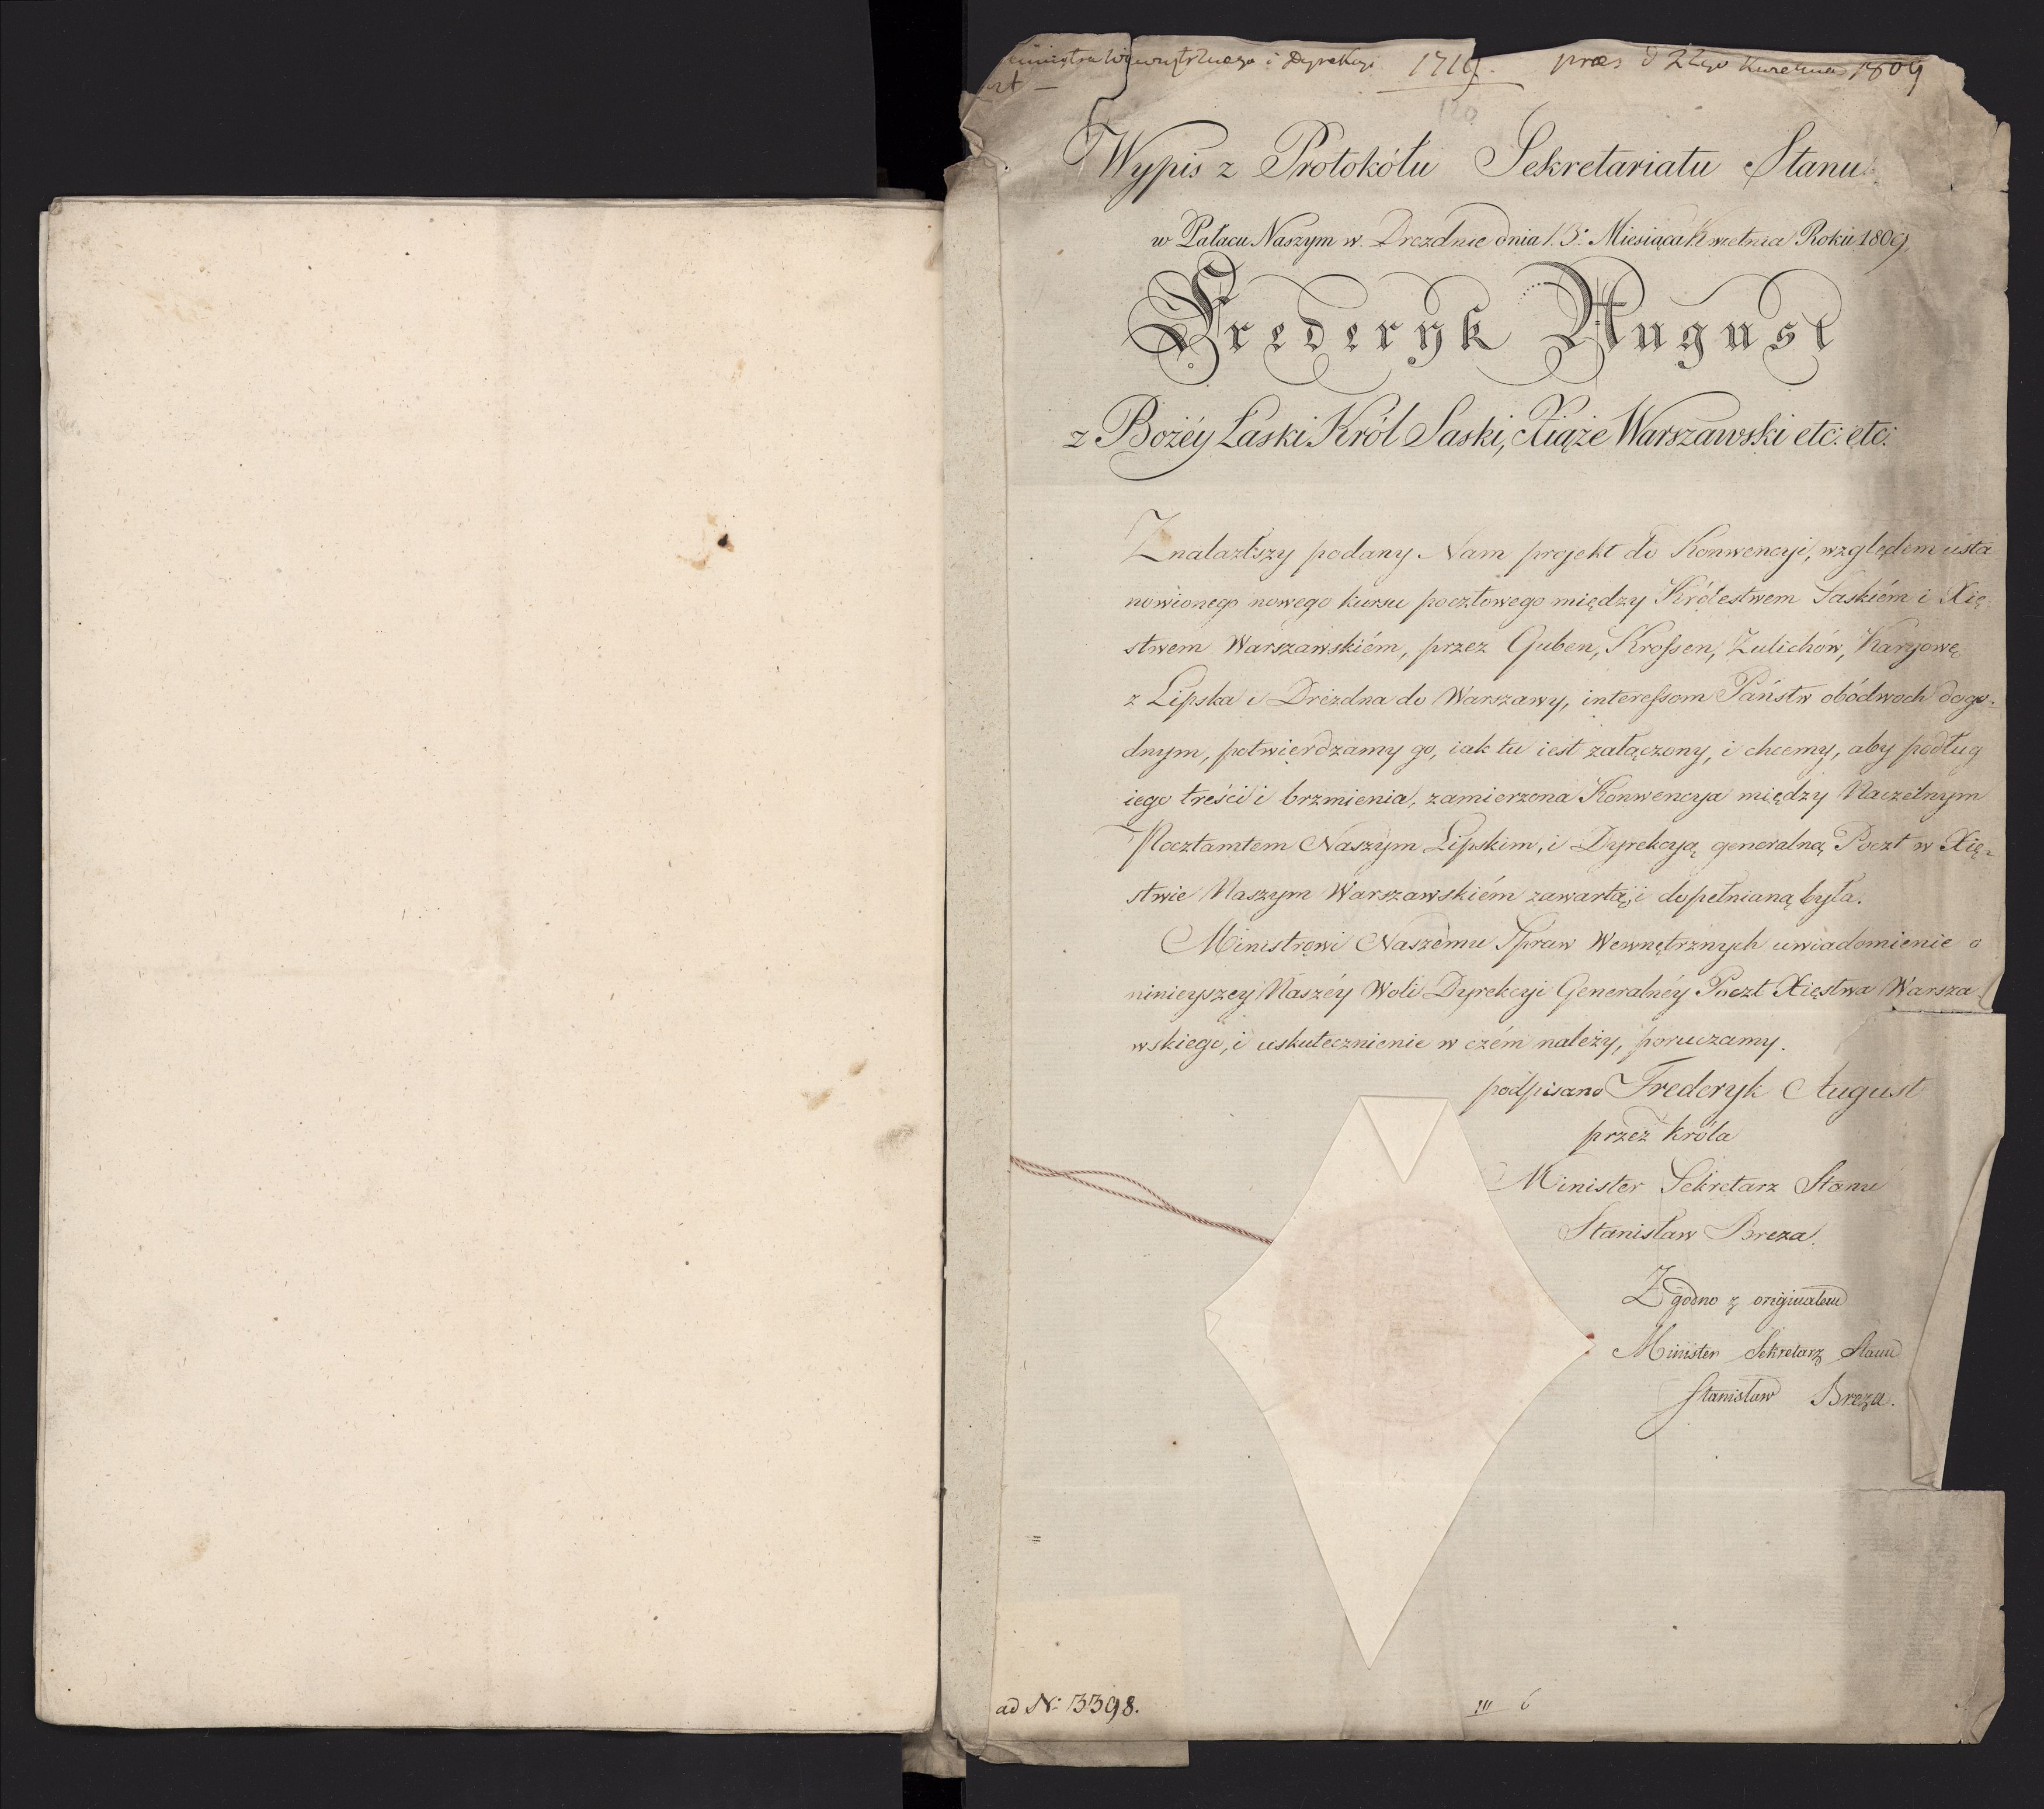 Wewnętrznego i Dyrekcyi 1719. præs d 22go Kwietnia 1809
Wypis z Protokółu Sekretariatu Stanu
w Pałacu Naszym w Dreznie dnia 13: Miesiąca Kwietnia Roku 1809
Frederyk August
z Bożéy Łaski Król Saski, Xiąże Warszawski etc: etc:
Znalazłszy podany Nam projekt do Konwencyi, względem usta
nowionego nowego kursu pocztowego między Królestwem Saskiém i Xię
stwem Warszawskiém, przez Guben, Krossen, Zulichów, Kargowę
z Lipska i Drezdna do Warszawy, interessom Państw obódwoch dogo-
dnym, potwierdzamy go, iak tu iest załączony, i chcemy, aby podług
iego treści i brzmienia, zamierzona Konwencya między Naczelnym
Pocztamtem Naszym Lipskim, i Dyrekcyą generalną Poczt w Xię-
stwie Naszym Warszawskiém zawartą i dopełnianą była.
Ministrowi Naszemu Spraw Wewnętrznych uwiadomienie o
ninieyszey Naszéy Woli Dyrekcyi Generalnéy Poczt Xięstwa Warsza
wskiego, i uskutecznienie w czém należy, poruczamy.
podpisano Frederyk August
przez Króla
Minister Sekretarz Stanu
Stanisław Breza.
Zgodno z originałem
Minister Sekretarz Stanu
Stanisław Breza.
ad N: 3398.
III 6